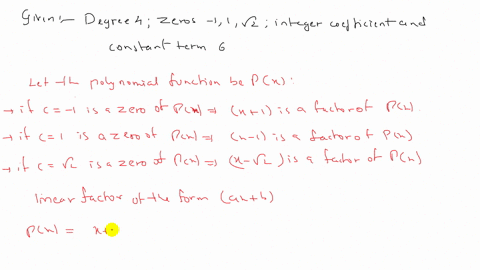 Given:- Degree 4; zeros -1, 1, √2; integer coefficient and
constant term 6
Let the polynomial function be P(x):
→ if c = -1 is a zero of P(x) ⇒ (x+1) is a factor of P(x)
→ if c = 1 is a zero of P(x) ⇒ (x-1) is a factor of P(x)
→ if c = √2 is a zero of P(x) ⇒ (x-√2) is a factor of P(x)
linear factor of the form (ax+b)
P(x) = x+